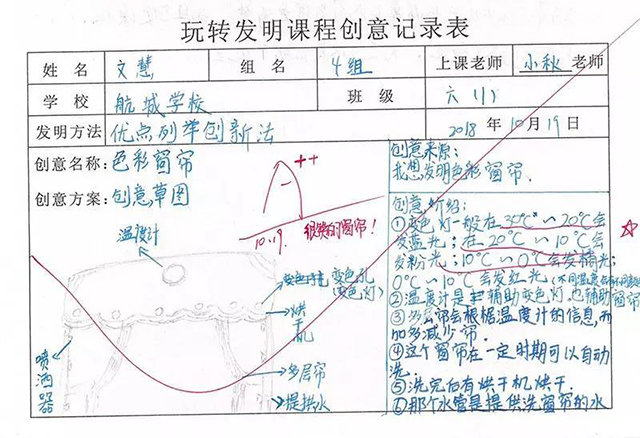 玩转发明课程创意记录表
姓 名 文慧 组 名 4组 上课老师 小秋 老师
学 校 航城学校 班 级 六(1)
发明方法 优点列举创新法 2018 年 10 月 19 日
创意名称:色彩窗帘
创意方案:创意草图
++
10.19. 很炫的窗帘!
温度计
变色孔
(变色灯)
烘干机
多层帘
提拱水
喷洒器
创意来源:
我想发明色彩窗帘.
创意介绍:
①变色灯一般在30℃~20℃会
发蓝光;在20℃~10℃会
发粉光;10℃~0℃会发橘光;
0℃~10℃会发红光
②温度计是辅助变色灯,也辅助窗帘
③多层帘会根据温度计的信息,而
加多减少帘.
④这个窗帘在一定时期可以自动
洗.
⑤洗完后有烘干机烘干.
⑥那个水管是提供洗窗帘的水